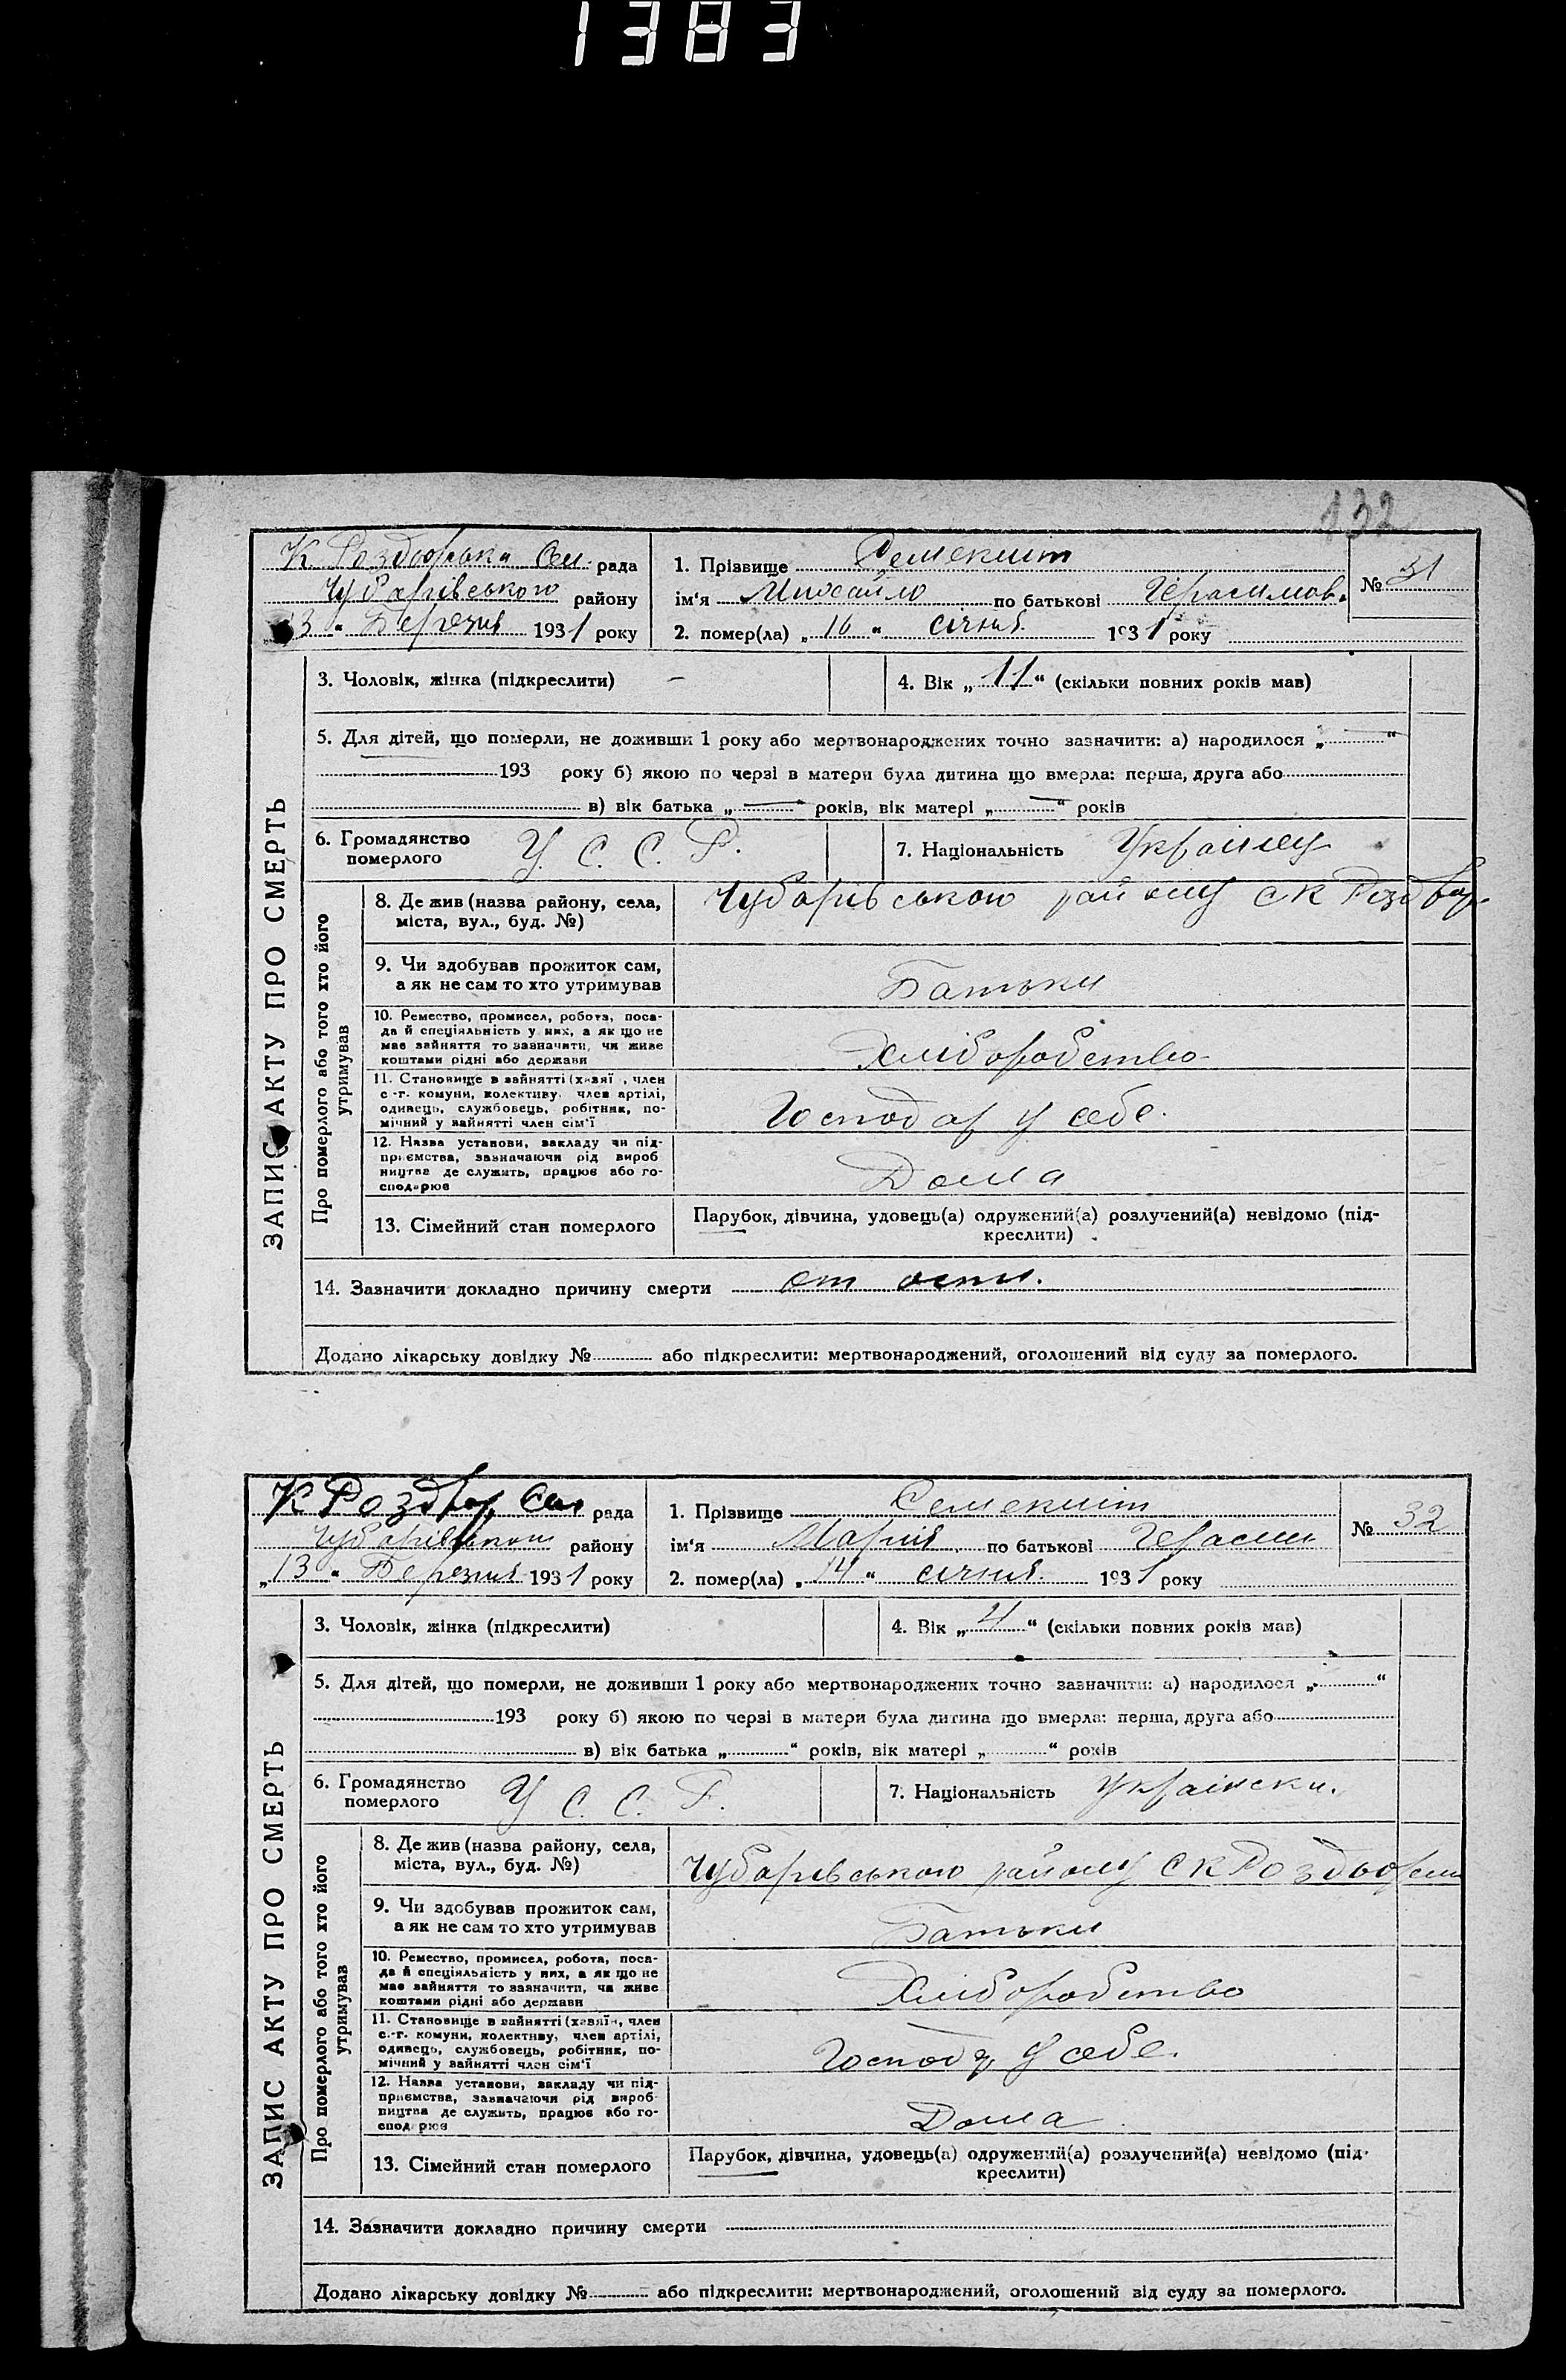 1383
132
К. Роздорська Сел. рада
Чубарівського району
13 " Березня 1931 року
1. Прізвище Семекит
ім'я Михайло по батькові Герасимов.
№ 31
2. помер(ла) „ 16 " січня 1931 року
ЗАПИС АКТУ ПРО СМЕРТЬ
3. Чоловік, жінка (підкреслити) –
4. Вік „ 11 " (скільки повних років мав)
5. Для дітей, що померли, не доживши 1 року або мертвонароджених точно зазначити: а) народилося „ — "
193 року б) якою по черзі в матери була дитина що вмерла: перша, друга або
в) вік батька „ — " років, вік матері „ — " років
6. Громадянство
померлого
У. С. С. Р.
7. Національність Українец
Про померлого або того хто його
утримував
8. Де жив (назва району, села,
міста, вул., буд. №)
Чубарівського району с К
9. Чи здобував прожиток сам,
а як не сам то хто утримував
Батьки
10. Ремество, промисел, робота, поса-
да й спеціяльність у них, а як що не
має зайняття то зазначити, чи живе
коштами рідні або держави
Хліборобство
11. Становище в зайнятті (хазяї , член
с -г. комуни, колективу, член артілі,
одинець, службовець, робітник, по-
мічний у зайнятті член сім'ї
Господар у себе.
12. Назва установи, закладу чи під-
приємства, зазначаючи рід вироб
ництва де служить, працює або го-
сподарює
Дома
13. Сімейний стан померлого
Парубок, дівчина, удовець(а) одружений(а) розлучений(а) невідомо (під-
креслити)
14. Зазначити докладно причину смерти от
Додано лікарську довідку № або підкреслити: мертвонароджений, оголошений від суду за померлого.
К Роздор, Сел рада
Чубарівського району
„ 13 " Березня 1931 року
1. Прізвище Семекит
ім'я Марія по батькові Герасим
№ 32
2. помер(ла) „ 14 " січня 1931 року
ЗАПИС АКТУ ПРО СМЕРТЬ
3. Чоловік, жінка (підкреслити)
4. Вік „ 4 " (скільки повних років мав)
5. Для дітей, що померли, не доживши 1 року або мертвонароджених точно зазначити: а) народилося „ "
193 року б) якою по черзі в матери була дитина що вмерла: перша, друга або
в) вік батька „ " років, вік матері „ " років
6. Громадянство
померлого
У С. С. Р.
7. Національність Українски.
Про померлого або того хто його
утримував
8. Де жив (назва району, села,
міста, вул., буд. №)
Чубарівського району С К
9. Чи здобував прожиток сам,
а як не сам то хто утримував
Батьки
10. Ремество, промисел, робота, поса-
да й спеціяльність у них, а як що не
має зайняття то зазначити, чи живе
коштами рідні або держави
Хліборобство
11. Становище в зайнятті (хазяїн, член
с.-г. комуни, колективу, член артілі,
одинець, службовець, робітник, по-
мічний у зайнятті член сім'ї
Господар у себе.
12. Назва установи, закладу чи під-
приємства, зазначаючи рід вироб-
ництва де служить, працює або го-
сподарює
Дома
13. Сімейний стан померлого
Парубок, дівчина, удовець(а) одружений(а) розлучений(а) невідомо (під-
креслити)
14. Зазначити докладно причину смерти
Додано лікарську довідку № або підкреслити: мертвонароджений, оголошений від суду за померлого.